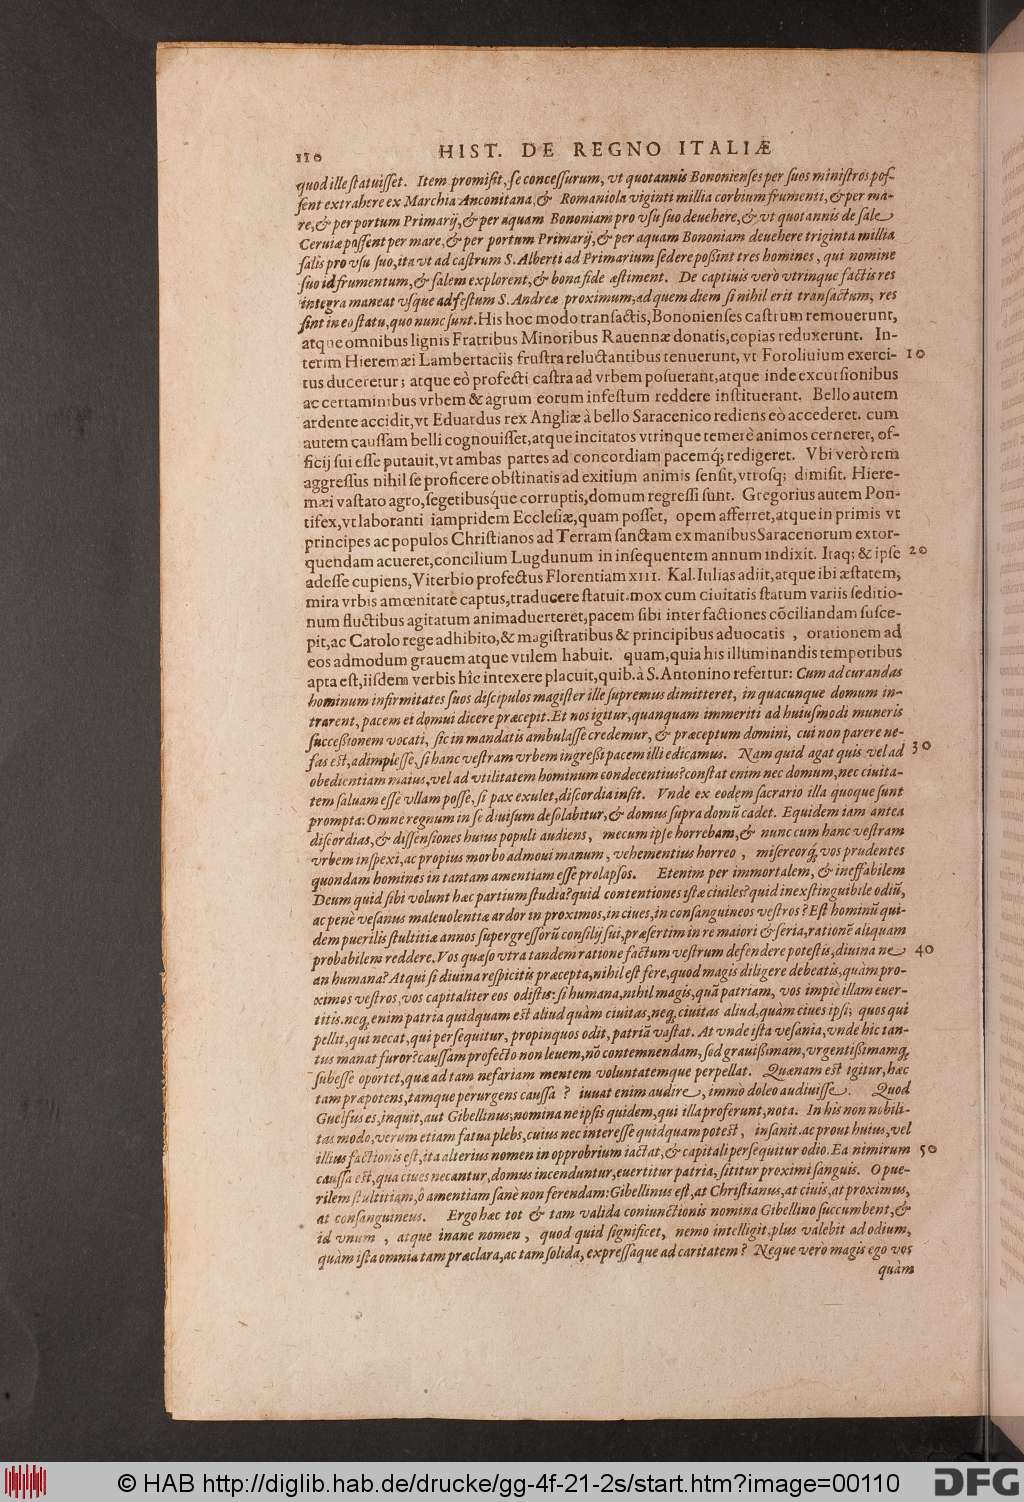 110 HIST. DE REGNO ITALIÆ
quod ille statuisset. Item promisit, se concessurum, vt quotannis Bononienses per suos ministros pos-
sent extrahere ex Marchia Anconitana, & Romaniola viginti millia corbium frumenti, & per ma-
re, & per portum Primarij, & per aquam Bononiam pro vsu suo deuehere, & vt quotannis de sale
Ceruiæ possent per mare, & per portum Primarij, & per aquam Bononiam deuehere triginta millia
salis pro vsu suo, ita vt ad castrum S. Alberti ad Primarium sedere possint tres homines, qui nomine
suo id frumentum, & salem explorent, & bona fide æstiment. De captiuis verò vtrinque factis res
integra maneat vsque ad festum S. Andreæ proximum, ad quem diem si nihil erit transactum, res
sint in eo statu, quo nunc sunt. His hoc modo transactis, Bononienses castrum remouerunt,
atque omnibus lignis Fratribus Minoribus Rauennæ donatis, copias reduxerunt. In-
terim Hieremæi Lambertaciis frustra reluctantibus tenuerunt, vt Foroliuium exerci- 10
tus duceretur; atque eò profecti castra ad vrbem posuerant, atque inde excursionibus
ac certaminibus vrbem & agrum eorum infestum reddere instituerant. Bello autem
ardente accidit, vt Eduardus rex Angliæ à bello Saracenico rediens eò accederet. cum
autem caussam belli cognouisset, atque incitatos vtrinque temerè animos cerneret, of-
ficij sui esse putauit, vt ambas partes ad concordiam pacemq́; redigeret. Vbi verò rem
aggressus nihil se proficere obstinatis ad exitium animis sensit, vtrosq; dimisit. Hiere-
mæi vastato agro, segetibusque corruptis, domum regressi sunt. Gregorius autem Pon-
tifex, vt laboranti iampridem Ecclesiæ, quam posset, opem afferret, atque in primis vt
principes ac populos Christianos ad Terram sanctam ex manibus Saracenorum extor-
quendam acueret, concilium Lugdunum in insequentem annum indixit. Itaq; & ipse 20
adesse cupiens, Viterbio profectus Florentiam XIII. Kal. Iulias adiit, atque ibi æstatem,
mira vrbis amœnitate captus, traducere statuit. mox cum ciuitatis statum variis seditio-
num fluctibus agitatum animaduerteret, pacem sibi inter factiones cõciliandam susce-
pit, ac Carolo rege adhibito, & magistratibus & principibus aduocatis, orationem ad
eos admodum grauem atque vtilem habuit. quam, quia his illuminandis temporibus
apta est, iisdem verbis hîc intexere placuit, quib. à S. Antonino refertur: Cum ad curandas
hominum infirmitates suos discipulos magister ille supremus dimitteret, in quacunque domum in-
trarent, pacem et domui dicere præcepit. Et nos igitur, quanquam immeriti ad huiusmodi muneris
successionem vocati, sic in mandatis ambulasse credemur, & præceptum domini, cui non parere ne-
fas est, adimplesse, si hanc vestram vrbem ingressi pacem illi edicamus. Nam quid agat quis vel ad 30
obedientiam maius, vel ad vtilitatem hominum condecentius? constat enim nec domum, nec ciuita-
tem saluam esse vllam posse, si pax exulet, discordia insit. Vnde ex eodem sacrario illa quoque sunt
prompta: Omne regnum in se diuisum desolabitur, & domus supra domũ cadet. Equidem iam antea
discordias, & dissensiones huius populi audiens, mecum ipse horrebam, & nunc cum hanc vestram
vrbem inspexi, ac propius morbo admoui manum, vehementius horreo, misereorq́, vos prudentes
quondam homines in tantam amentiam esse prolapsos. Etenim per immortalem, & ineffabilem
Deum quid sibi volunt hæc partium studia? quid contentiones istæ ciuiles? quid inextinguibile odiũ,
ac penè vesanus maleuolentiæ ardor in proximos, in ciues, in consanguineos vestros? Est hominũ qui-
dem puerilis stultitiæ annos supergressorũ consilij sui, præsertim in re maiori & seria, rationẽ aliquam
probabilem reddere. Vos quæso vtra tandem ratione factum vestrum defendere potestis, diuina ne 40
an humana? At qui si diuina respicitis præcepta, nihil est fere, quod magis diligere debeatis, quàm pro-
ximos vestros, vos capitaliter eos odistis: si humana, nihil magis, quã patriam, vos impiè illam euer-
titis. neq, enim patria quidquam est aliud quàm ciuitas, neq, ciuitas aliud, quàm ciues ipsi; quos qui
pellit, qui necat, qui persequitur, propinquos odit, patriã vastat. At vnde ista vesania, vnde hic tan-
tus manat furor? caussam profecto non leuem, nõ contemnendam, sed grauissimam, vrgentissimamq́,
subesse oportet, quæ ad tam nefariam mentem voluntatemque perpellat. Quænam est igitur, hæc
tam præpotens, tamque perurgens caussa? iuuat enim audire, immò doleo audiuisse. Quod
Guelfus es, inquit, aut Gibellinus; nomina ne ipsis quidem, qui illa proferunt, nota. In his non nobili-
tas modo, verum etiam fatua plebs, cuius nec interesse quidquam potest, insanit. ac prout huius, vel
illius factionis est, ita alterius nomen in opprobrium iactat, & capitali persequitur odio. Ea nimirum 50
caussa est, qua ciues necantur, domus incenduntur, euertitur patria, sititur proximi sanguis. O pue-
rilem stultitiam, ô amentiam sanè non ferendam: Gibellinus est, at Christianus, at ciuis, at proximus,
at consanguineus. Ergo hæc tot & tam valida coniunctionis nomina Gibellino succumbent, &
id vnum, atque inane nomen, quod quid significet, nemo intelligit, plus valebit ad odium,
quàm ista omnia tam præclara, ac tam solida, expressaque ad caritatem? Neque vero magis ego vos
quàm
© HAB http://diglib.hab.de/drucke/gg-4f-21-2s/start.htm?image=00110 DFG